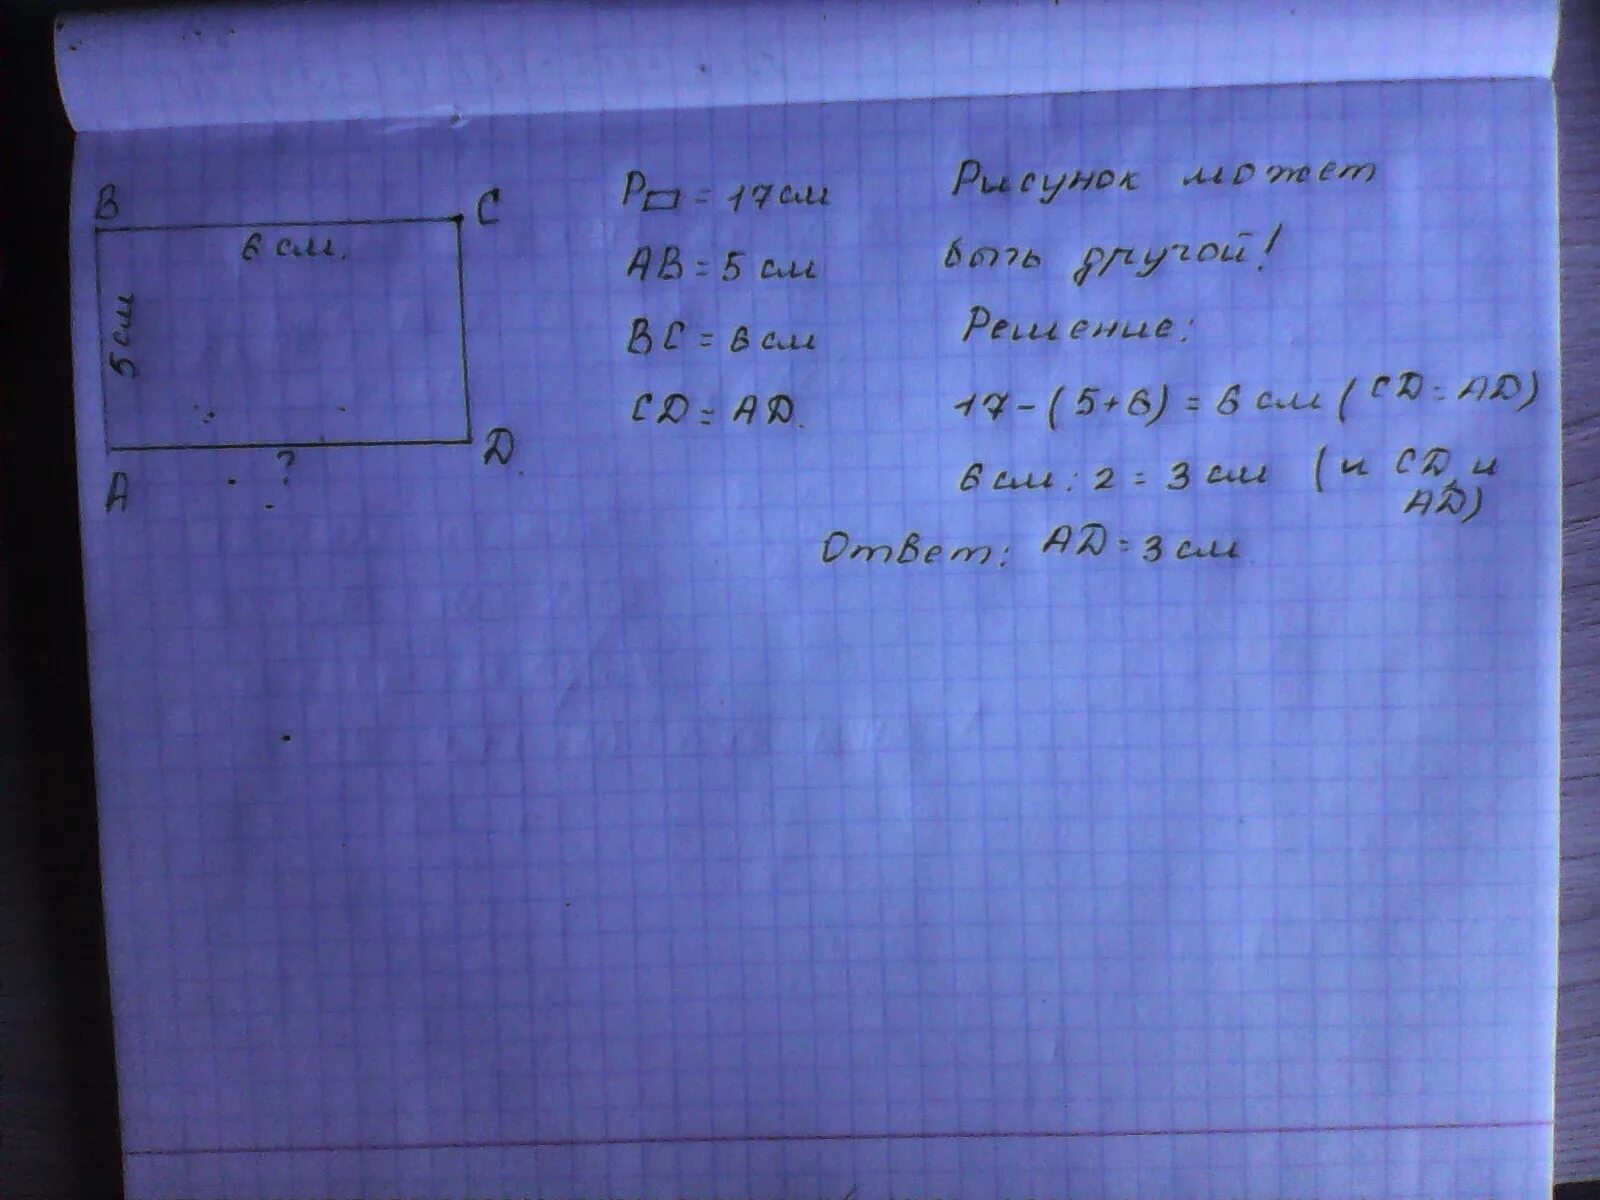 B
C
6 см.
5 см
A
?
D.
P▭ = 17 см
AB = 5 см
BC = 6 см
CD = AD.
Рисунок может
быть другой!
Решение:
17 - (5+6) = 6 см (CD = AD)
6 см : 2 = 3 см (и CD, и
AD)
Ответ: AD = 3 см